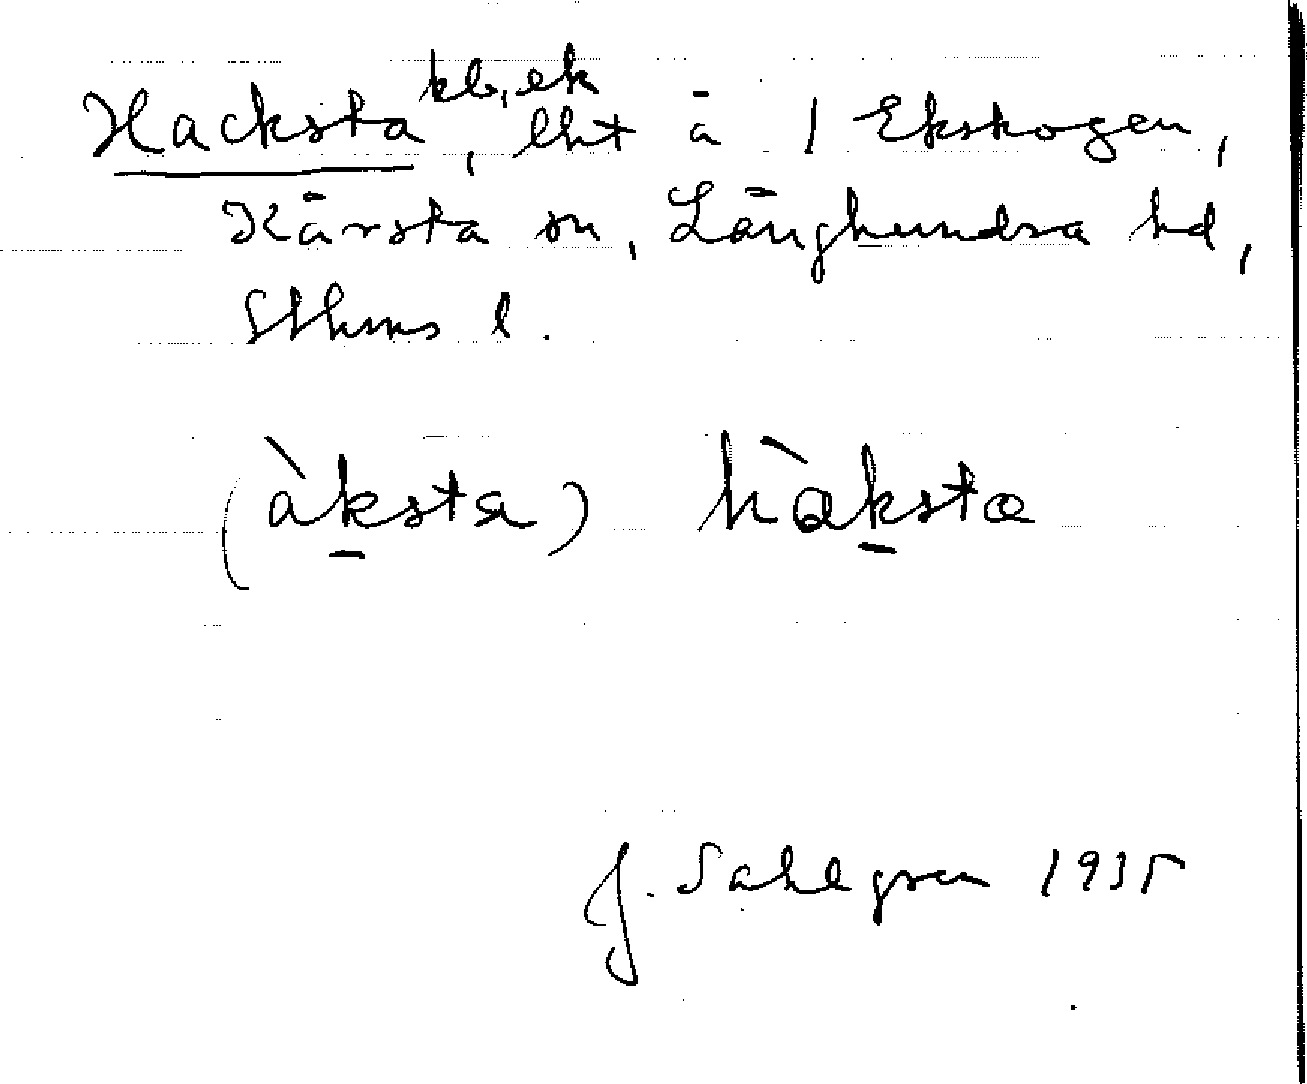 Hacksta kb, ek, lht å 1 Ekskogen,
Kårsta sn, Långhundra hd,
Sthms l.
(àksta) hàksta
J. Sahlgren 1935